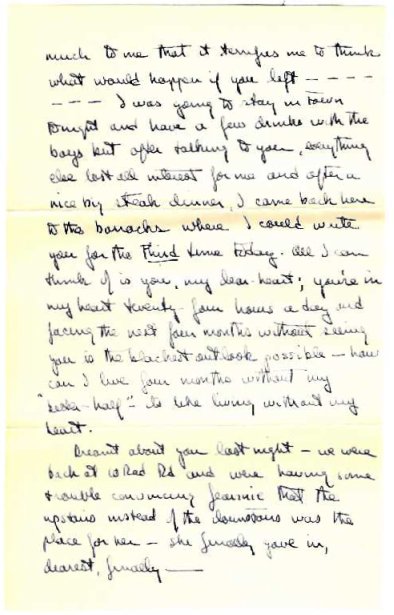 much to me that it terrifies me to think
what would happen if you left - - - -
- - - - I was going to stay in town
tonight and have a few drinks with the
boys but after talking to you, everything
else lost all interest for me and after a
nice big steak dinner, I came back here
to the barracks where I could write
you for the Third time today. All I can
think of is you, my dear heart; you're in
my heart twenty four hours a day and
facing the next four months without seeing
you is the blackest outlook possible – how
can I live four months without my
"better-half" – its like living without my
heart.
Dreamt about you last night – we were
back at Rd and were having some
trouble convincing Jeannie that the
upstairs instead of the downstairs was the
place for her – she finally gave in,
dearest, finally —